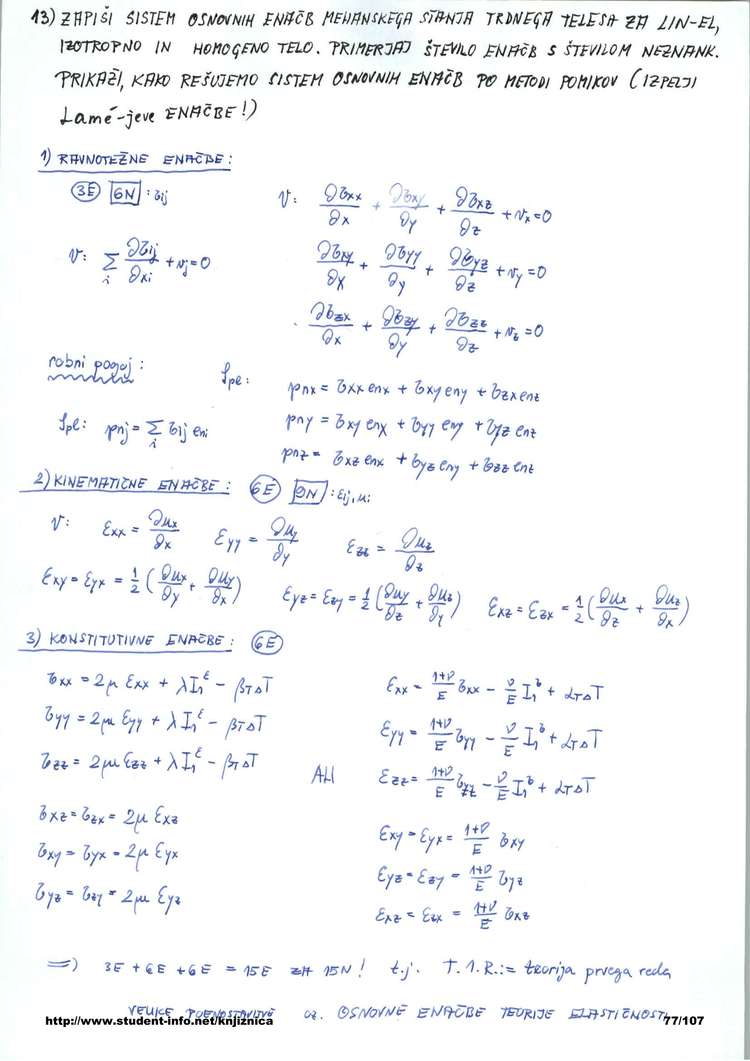 13) ZAPIŠI SISTEM OSNOVNIH ENAČB MEHANSKEGA STANJA TRDNEGA TELESA ZA LIN-EL,
IZOTROPNO IN HOMOGENO TELO. PRIMERJAJ ŠTEVILO ENAČB S ŠTEVILOM NEZNANK.
PRIKAŽI, KAKO REŠUJEMO SISTEM OSNOVNIH ENAČB PO METODI POMIKOV (IZPELJI
Lamé-jeve ENAČBE!)
1) RAVNOTEŽNE ENAČBE:
3E 6N : σij
V: ∂σxx/∂x + ∂σxy/∂y + ∂σxz/∂z + vx = 0
V: Σi ∂σij/∂xi + vj = 0
∂σxy/∂x + ∂σyy/∂y + ∂σyz/∂z + vy = 0
∂σzx/∂x + ∂σzy/∂y + ∂σzz/∂z + vz = 0
robni pogoj:
Spl: pnx = σxx enx + σxy eny + σzx enz
Spl: pnj = Σi σij eni
pny = σxy enx + σyy eny + σyz enz
pnz = σxz enx + σyz eny + σzz enz
2) KINEMATIČNE ENAČBE: 6E 9N : εij, ui
V: εxx = ∂ux/∂x εyy = ∂uy/∂y εzz = ∂uz/∂z
εxy = εyx = 1/2 (∂ux/∂y + ∂uy/∂x) εyz = εzy = 1/2 (∂uy/∂z + ∂uz/∂y) εxz = εzx = 1/2 (∂ux/∂z + ∂uz/∂x)
3) KONSTITUTIVNE ENAČBE: 6E
σxx = 2μ εxx + λI₁ᵋ - βTΔT εxx = 1+ν/E σxx - ν/E I₁ᵟ + αTΔT
σyy = 2μ εyy + λI₁ᵋ - βTΔT εyy = 1+ν/E σyy - ν/E I₁ᵟ + αTΔT
σzz = 2μ εzz + λI₁ᵋ - βTΔT ALI εzz = 1+ν/E σzz - ν/E I₁ᵟ + αTΔT
σxz = σzx = 2μ εxz εxy = εyx = 1+ν/E σxy
σxy = σyx = 2μ εyx εyz = εzy = 1+ν/E σyz
σyz = σzy = 2μ εyz εxz = εzx = 1+ν/E σxz
⇒ 3E + 6E + 6E = 15E ZA 15N! t.j. T.1.R.:= teorija prvega reda
VELIKE POENOSTAVITVE oz. OSNOVNE ENAČBE TEORIJE ELASTIČNOSTI
http://www.student-info.net/knjiznica 77/107